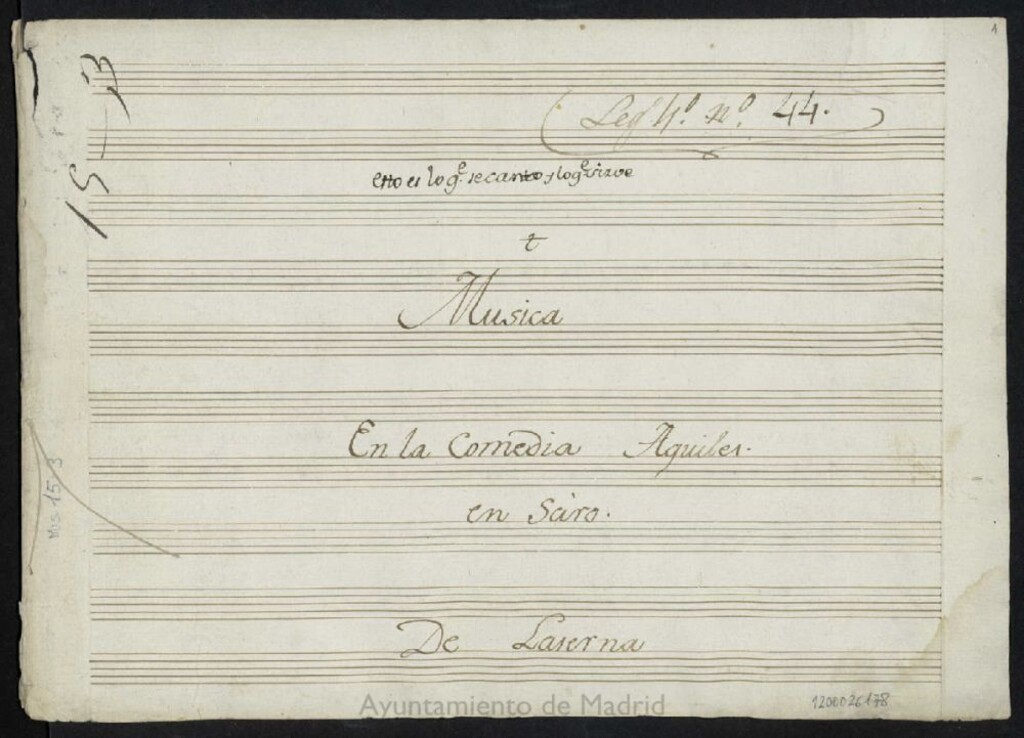 1
15-3
Legº 4º. nº. 44.
esto es lo q.e se canto y lo q.e sirve
t
Musica
En la Comedia Aquiles.
en Sciro.
De Laserna
Mus 15-3
Ayuntamiento de Madrid
1200026178